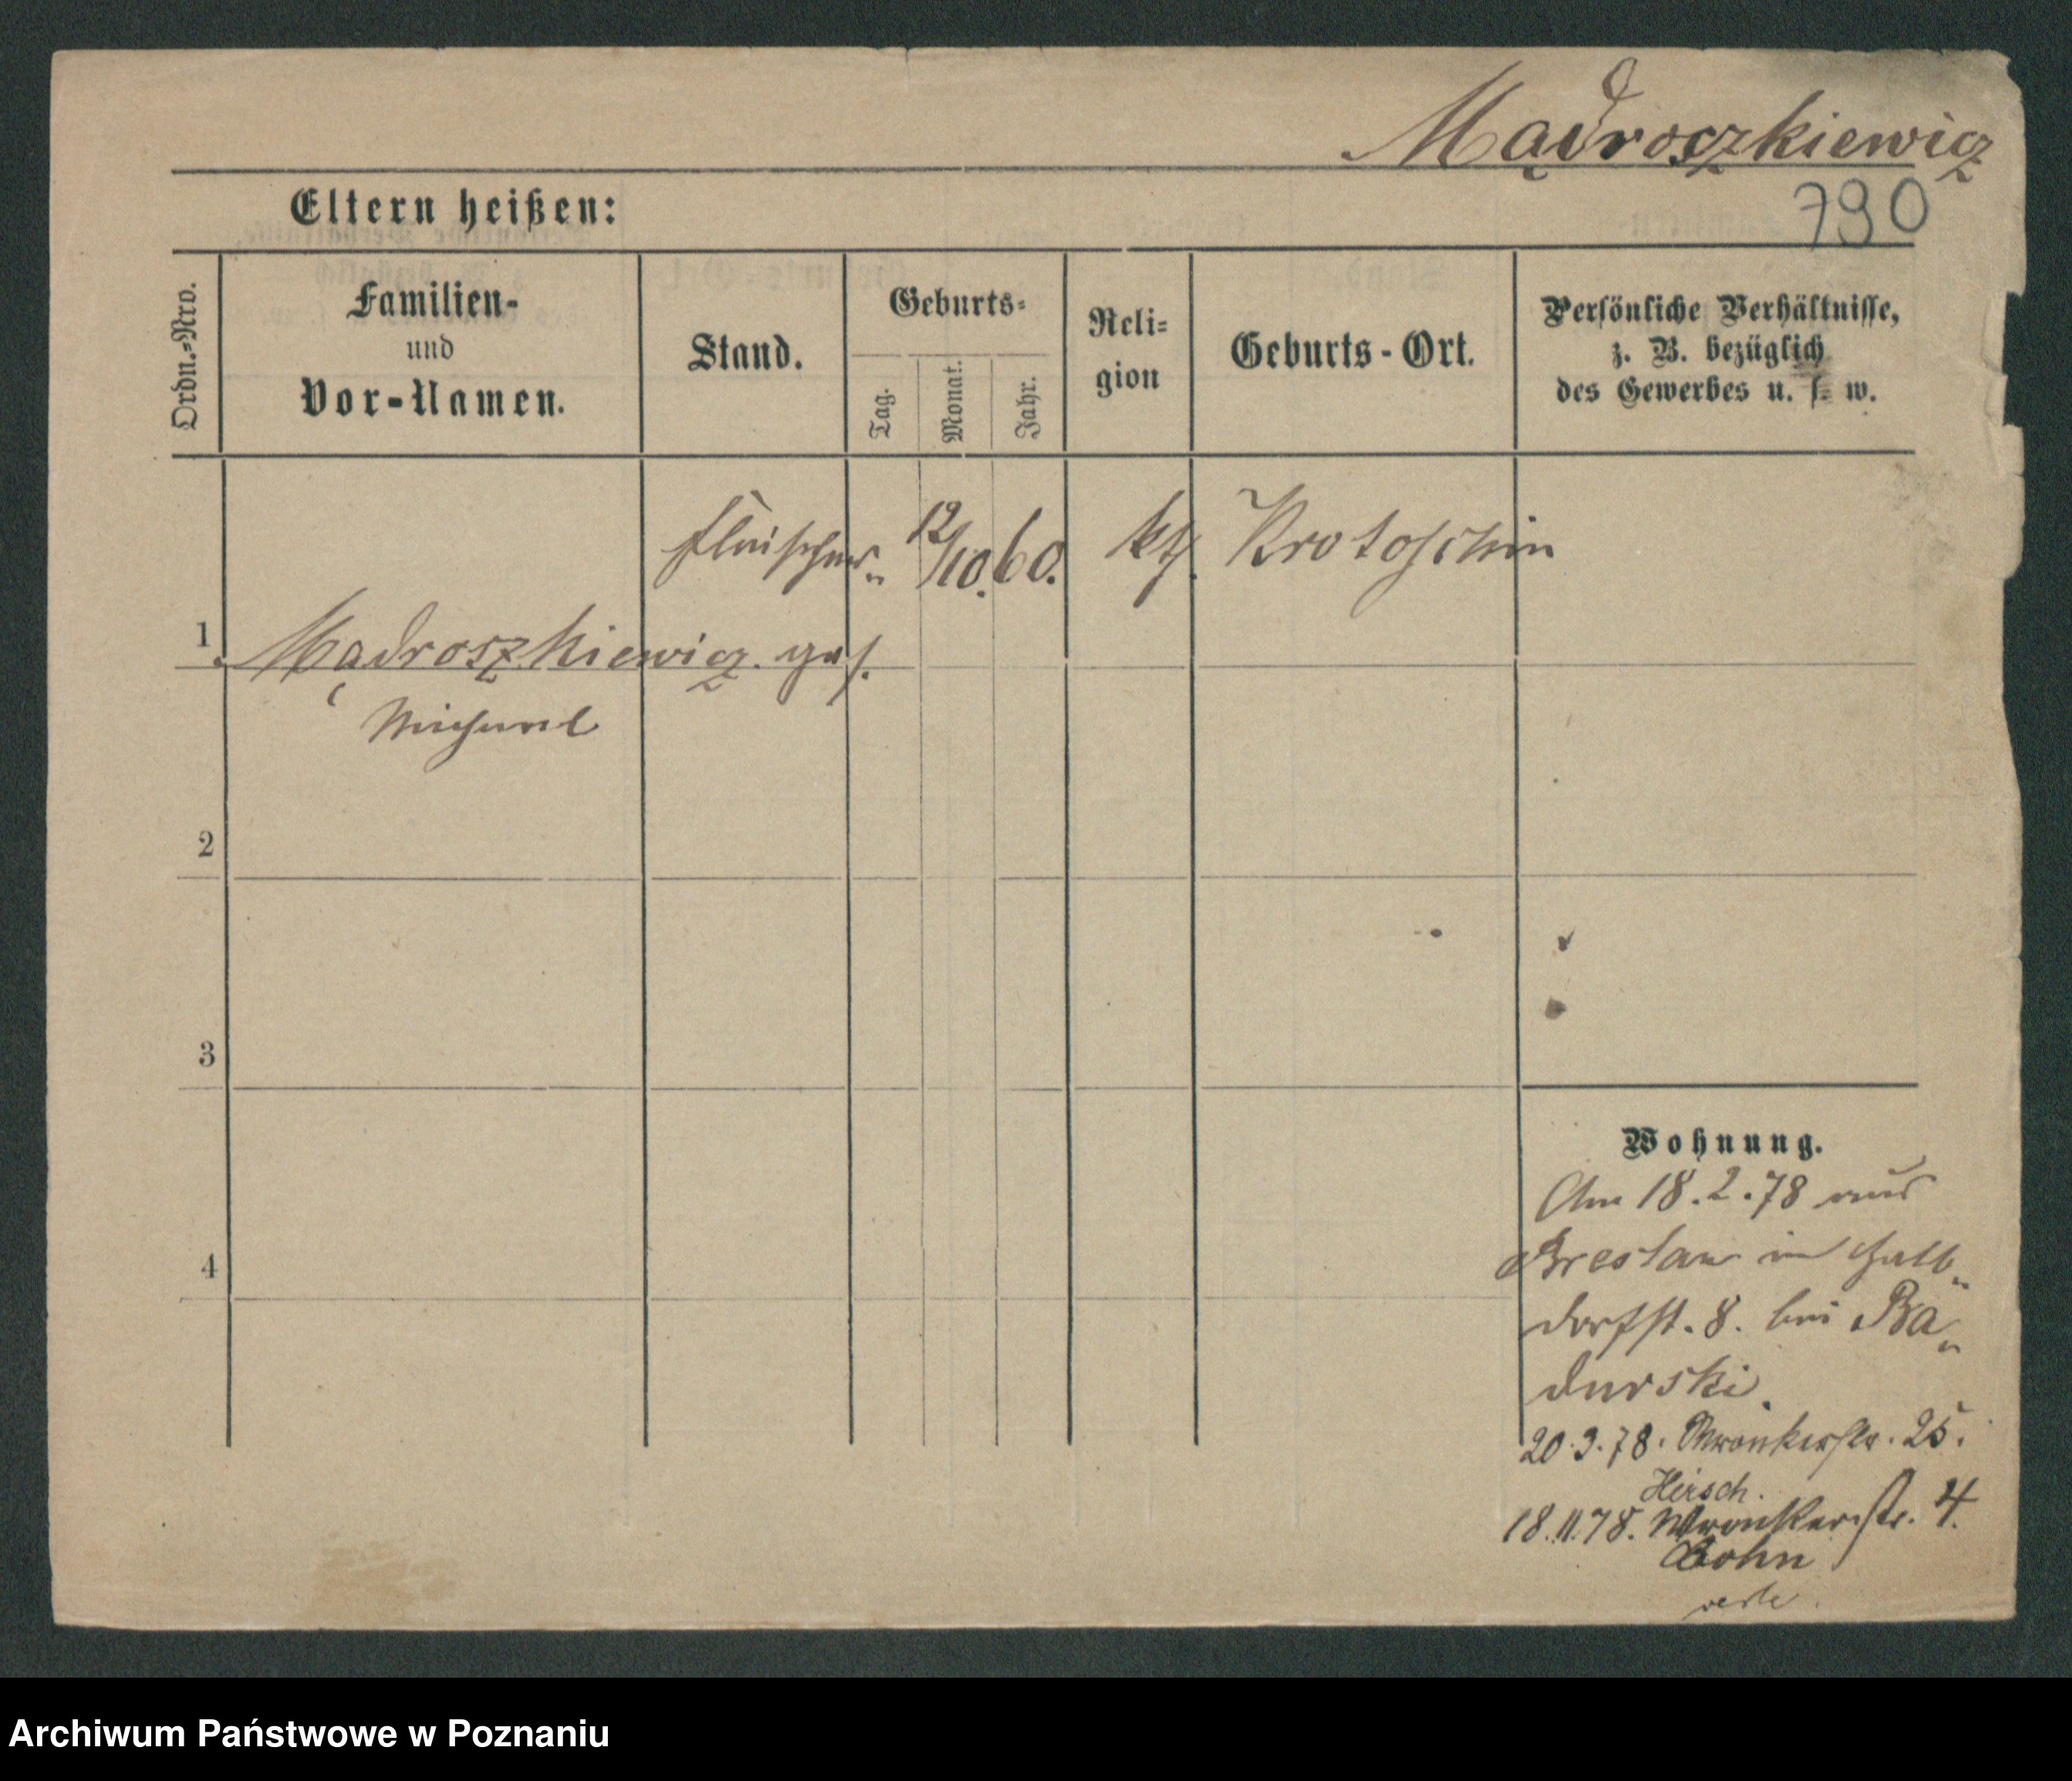 Mądroszkiewicz
790
Eltern heißen:
Ordn.-Nro.
Familien-
und
Vor-Namen.
Stand.
Geburts-
Tag.
Monat.
Jahr.
Reli-
gion
Geburts-Ort.
Persönliche Verhältnisse,
z. B. bezüglich
des Gewerbes u. s. w.
Fleischer- 12/10. 60. kth. Krotoschin
1 Mądroszkiewicz ges.
Michael
2
3
4
Wohnung.
Am 18.2.78 aus
Breslau in Halb-
dorfst. 8. bei Ba-
durski.
20.3.78. Wronkerstr. 25.
Hirsch.
18.11.78. Wronkerstr. 4.
Archiwum Państwowe w Poznaniu